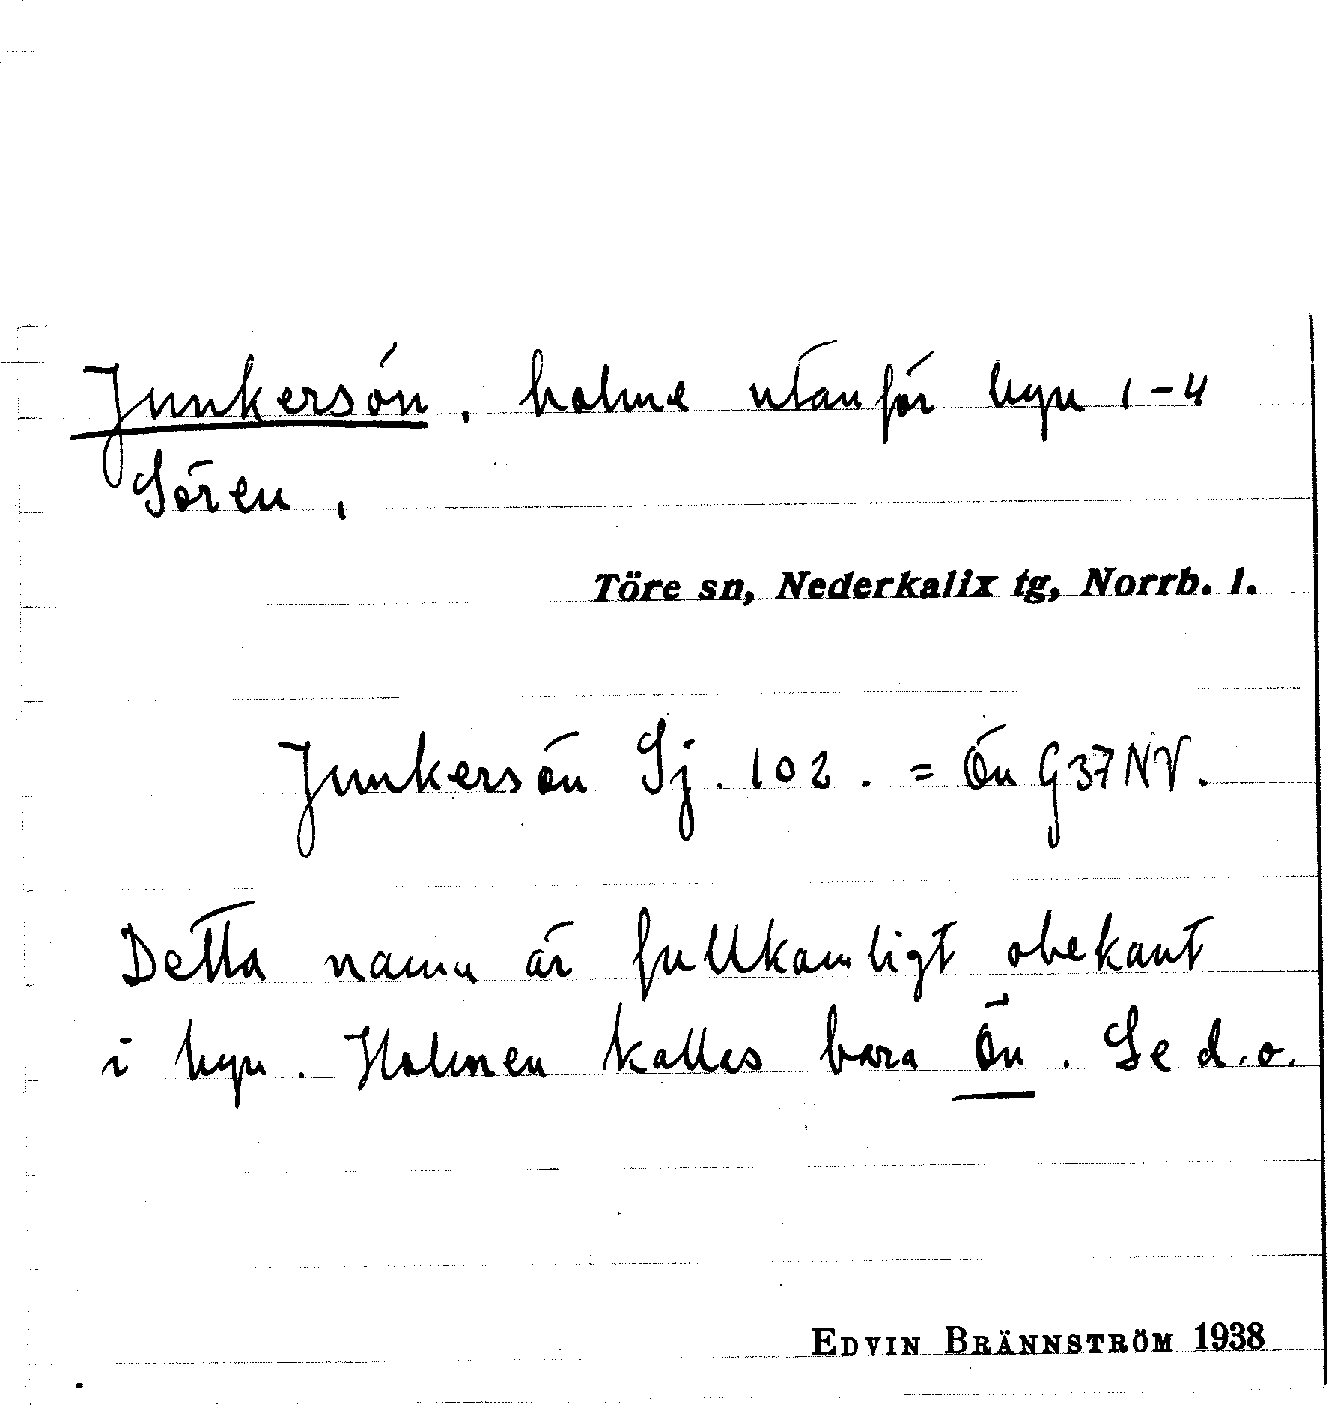 Junkersön, holme utanför byn 1-4
Sören,
Töre sn, Nederkalix tg, Norrb. l.
Junkersön Sj. 102. = Ön G37NV.
Detta namn är fullkomligt obekant
i byn. Holmen kallas bara Ön. Se d.o.
EDVIN BRÄNNSTRÖM 1938